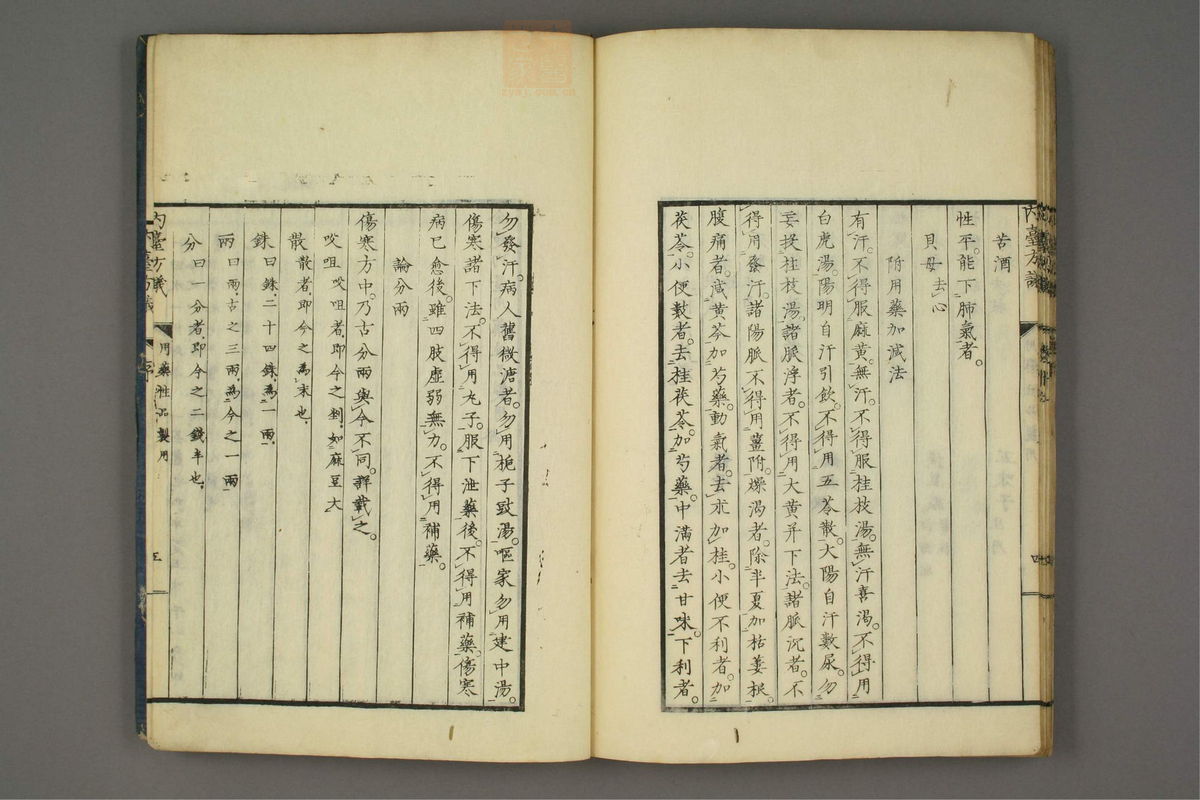 苦酒
性平。能下肺氣者。
貝母 去心
附用藥加減法
有汗。不得服麻黄。無汗。不得服桂枝湯。無汗喜渴。不得用
白虎湯。陽明自汗引飲。不得用五苓散。太陽自汗數尿。勿
妄投桂枝湯。諸脈浮者。不得用大黄并下法。諸脈沉者。不
得用發汗。諸陽脈不得用薑附。燥渴者。除半夏加枯蔞根。
腹痛者。減黄芩加芍藥。動氣者。去朮加桂。小便不利者。加
茯苓。小便數者。去桂茯苓。加芍藥。中滿者去甘味。下利者。
勿發汗。病人舊微溏者。勿用梔子豉湯。嘔家勿用建中湯。
傷寒諸下法。不得用丸子。服下泄藥後。不得用補藥。傷寒
病已愈後。雖四肢虚弱無力。不得用補藥。
論分兩
傷寒方中。乃古分兩與今不同。詳載之。
㕮咀 㕮咀者即今之剉如麻豆大
散 散者即今之為末也
銖 曰銖二十四銖為一兩
兩 曰兩古之三兩為今之一兩
分 曰一分者即今之二錢半也
内臺方議 用藥性品製用 三